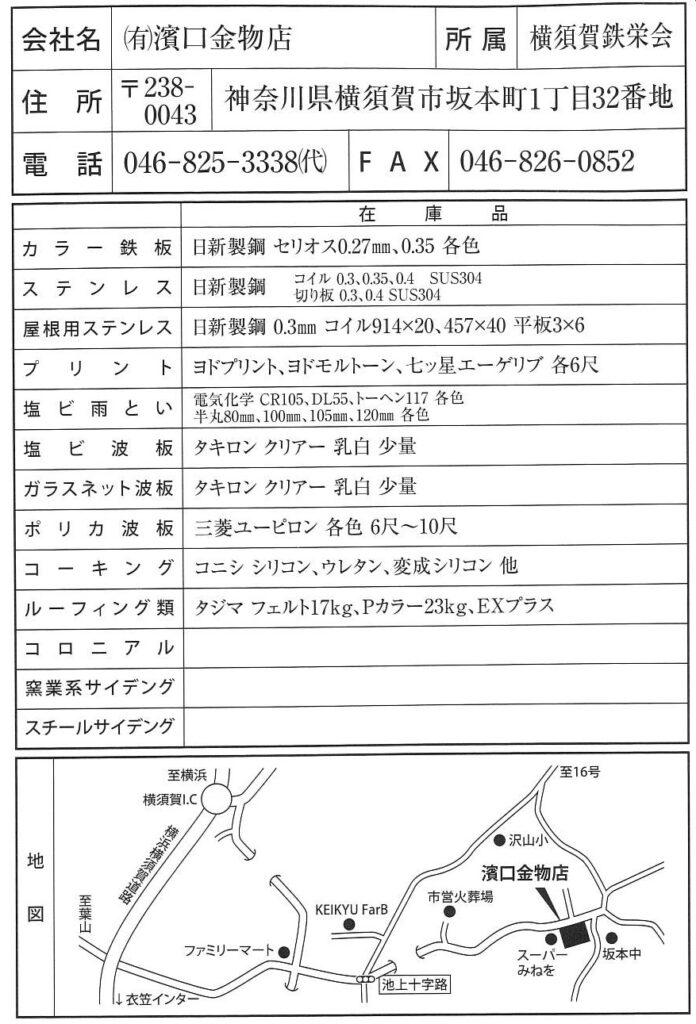 会社名 ㈲濱口金物店 所属 横須賀鉄栄会
住所 〒238-0043 神奈川県横須賀市坂本町1丁目32番地
電話 046-825-3338㈹ FAX 046-826-0852
在庫品
カラー鉄板 日新製鋼 セリオス0.27㎜、0.35 各色
ステンレス 日新製鋼 コイル 0.3、0.35、0.4 SUS304
切り板 0.3、0.4 SUS304
屋根用ステンレス 日新製鋼 0.3㎜ コイル914×20、457×40 平板3×6
プリント ヨドプリント、ヨドモルトーン、七ッ星エーゲリブ 各6尺
塩ビ雨とい 電気化学 CR105、DL55、トーヘン117 各色
半丸80㎜、100㎜、105㎜、120㎜ 各色
塩ビ波板 タキロン クリアー 乳白 少量
ガラスネット波板 タキロン クリアー 乳白 少量
ポリカ波板 三菱ユーピロン 各色 6尺～10尺
コーキング コニシ シリコン、ウレタン、変成シリコン 他
ルーフィング類 タジマ フェルト17kg、Pカラー23kg、EXプラス
コロニアル
窯業系サイデング
スチールサイデング
地図
至横浜
横須賀I.C
横浜横須賀道路
至葉山
↓衣笠インター
ファミリーマート
KEIKYU FarB
池上十字路
市営火葬場
沢山小
至16号
濱口金物店
スーパー
みねを
坂本中